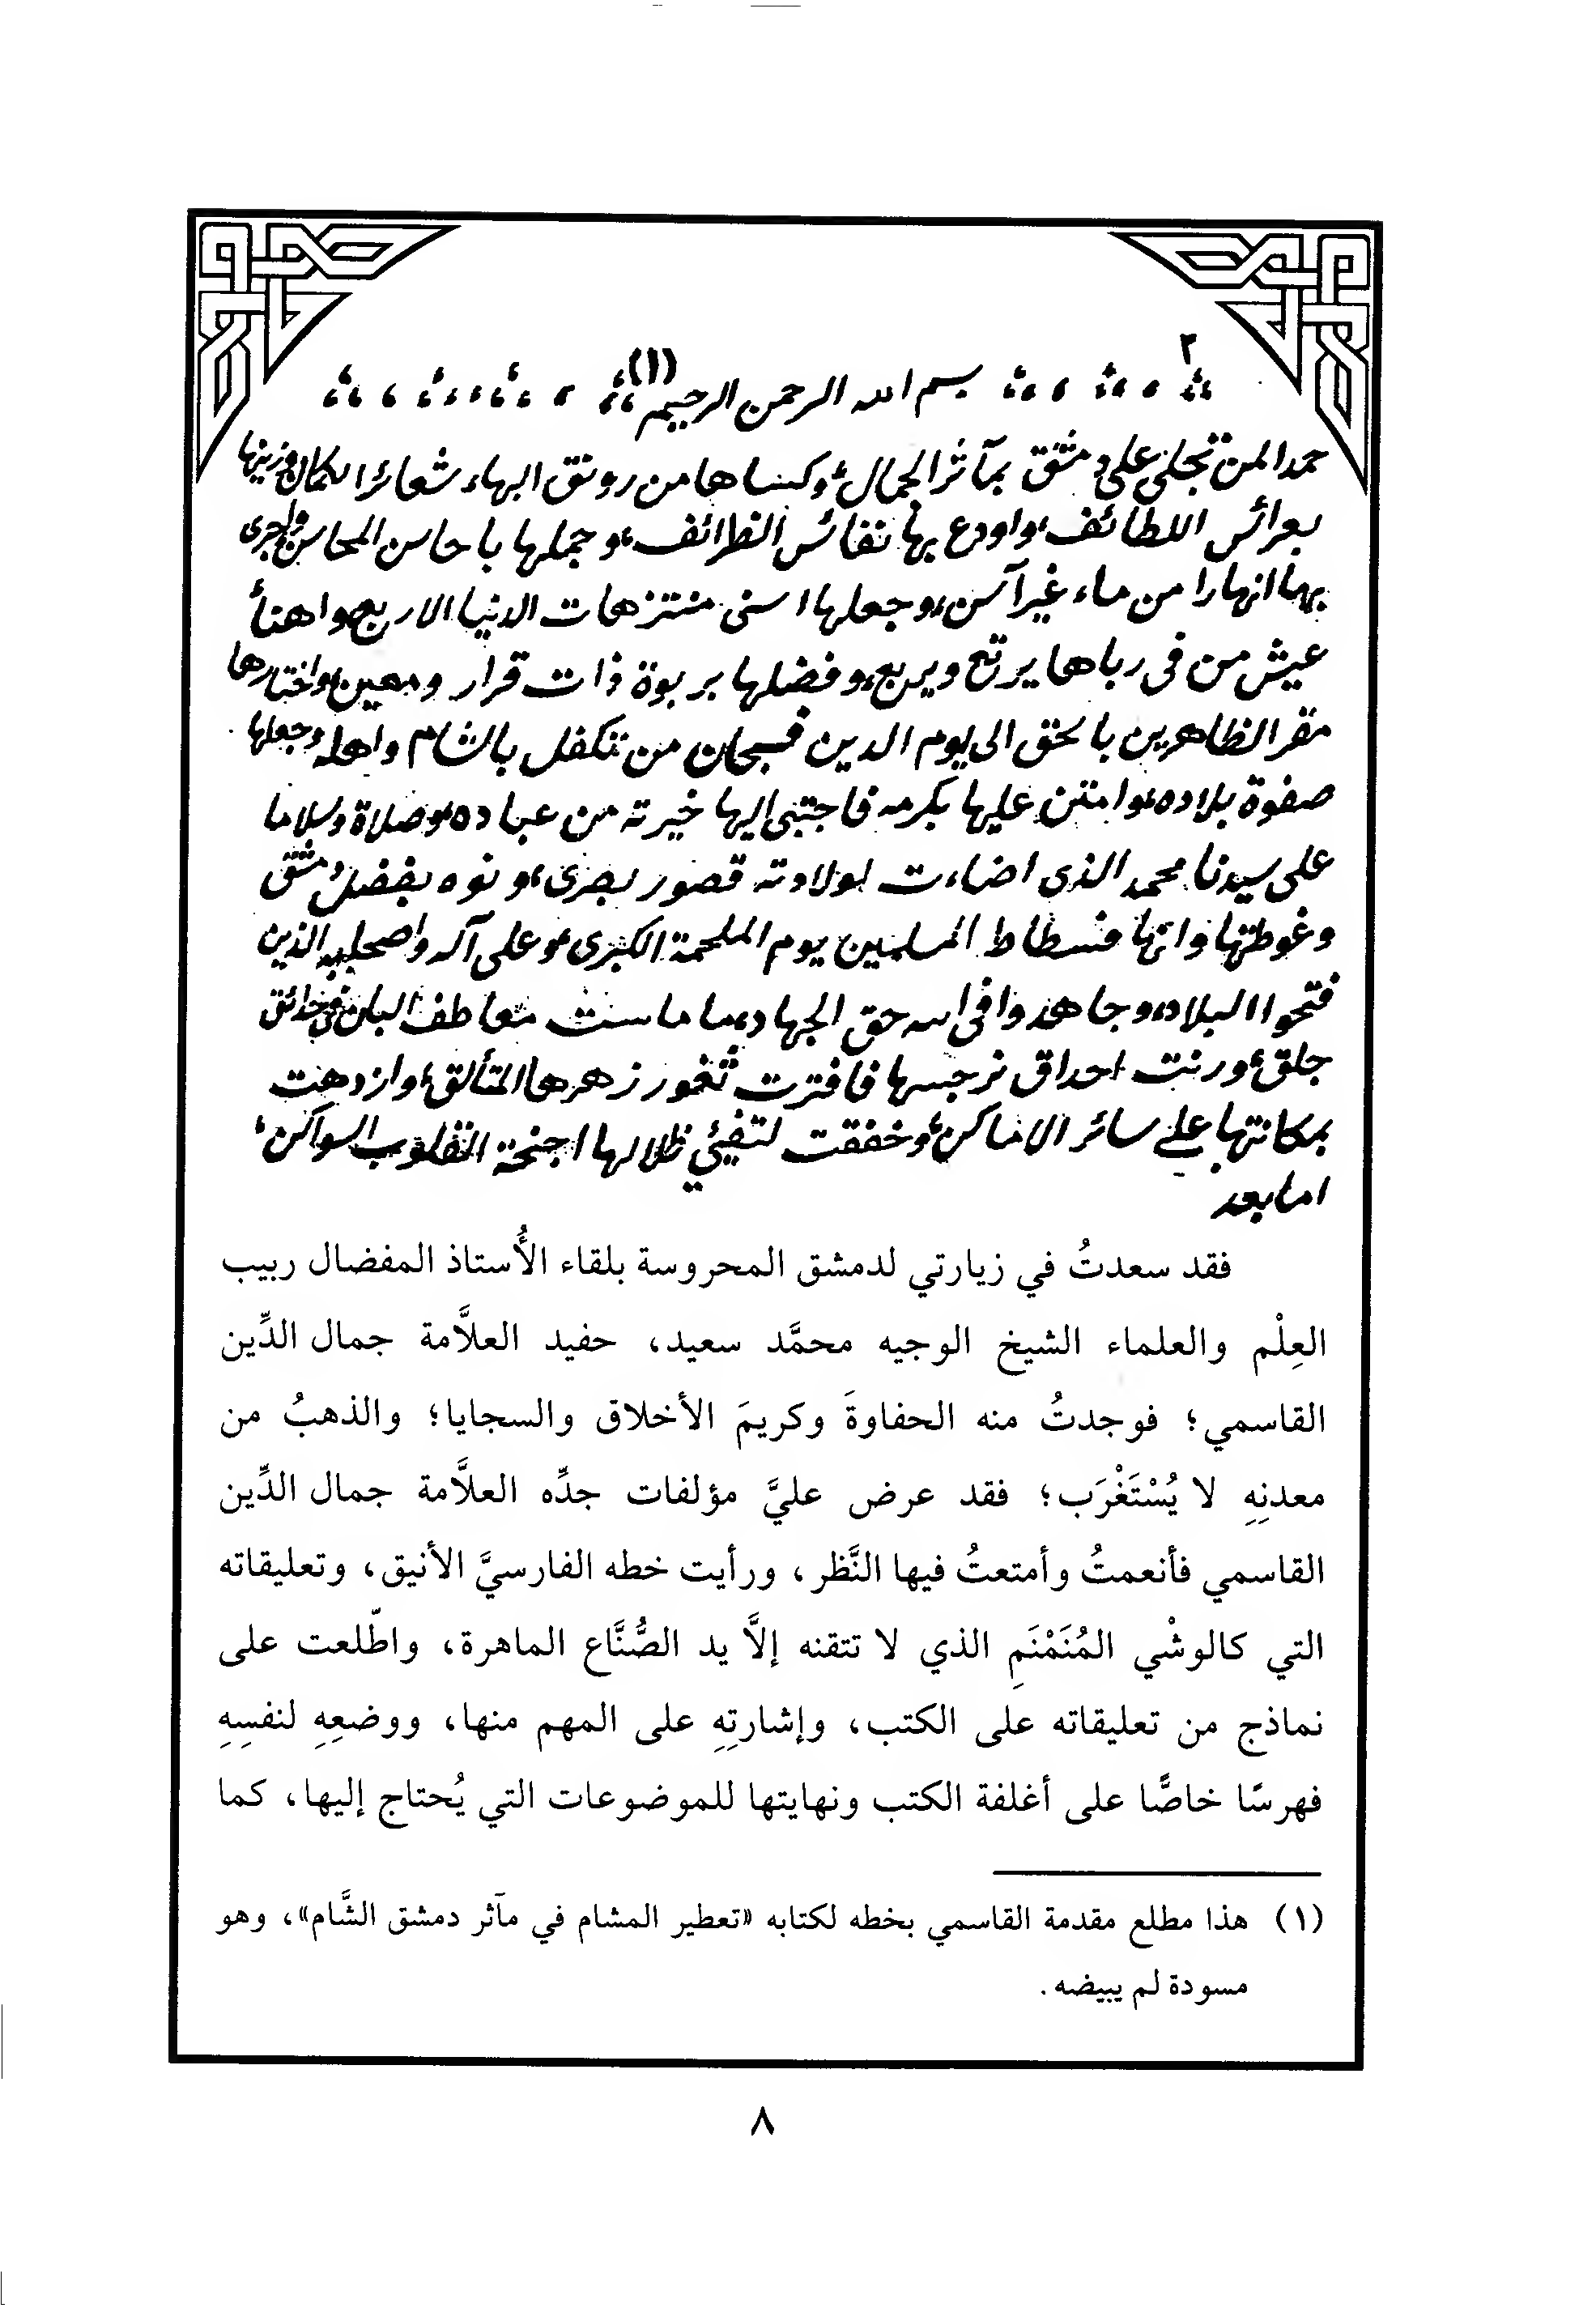 ٢
بسم الله الرحمن الرحيم (١)
حمدا لمن تجلى على دمشق بمآثر الجمال، وكساها من رونق البهاء شعائر الكمال، وزينها
بعرائس اللطائف، واودع بها نفائس الظرائف، وجملها باحاسن المحاسن، واجرى
بها انهارا من ماء غير آسن، وجعلها اسنى منتزهات الدنيا الاربع، واهنأ
عيش من في رباها يرتع ويربع، وفضلها بربوة ذات قرار ومعين، واختارها
مقر الظاهرين بالحق الى يوم الدين فسبحان من تكفل بالشام واهله وجعلها
صفوة بلاده، وامتن عليها بكرمه فاجتبى اليها خيرته من عباده، وصلاة وسلاما
على سيدنا محمد الذى اضاءت لولادته قصور بصرى، ونوه بفضل دمشق
وغوطتها وانها فسطاط المسلمين يوم الملحمة الكبرى، وعلى آله واصحابه الذين
فتحوا البلاد، وجاهدوا فى الله حق الجهاد، ما ماست معاطف البان فى حدائق
جلق، ورنت احداق نرجسها فافترت ثغور زهرها المتألق، وازدهت
بمكانتها على سائر الاماكن، وخفقت لتفيئ ظلالها اجنحة القلوب السواكن،
اما بعد
فقد سعدتُ في زيارتي لدمشق المحروسة بلقاء الأُستاذ المفضال ربيب
العِلْم والعلماء الشيخ الوجيه محمَّد سعيد، حفيد العلاَّمة جمال الدِّين
القاسمي؛ فوجدتُ منه الحفاوةَ وكريمَ الأخلاق والسجايا؛ والذهبُ من
معدنِهِ لا يُسْتَغْرَب؛ فقد عرض عليَّ مؤلفات جدِّه العلاَّمة جمال الدِّين
القاسمي فأنعمتُ وأمتعتُ فيها النَّظر، ورأيت خطه الفارسيَّ الأنيق، وتعليقاته
التي كالوشْي المُنَمْنَمِ الذي لا تتقنه إلاَّ يد الصُّنَّاع الماهرة، واطّلعت على
نماذج من تعليقاته على الكتب، وإشارتِهِ على المهم منها، ووضعِهِ لنفسِهِ
فهرسًا خاصًّا على أغلفة الكتب ونهايتها للموضوعات التي يُحتاج إليها، كما
(١) هذا مطلع مقدمة القاسمي بخطه لكتابه «تعطير المشام في مآثر دمشق الشَّام»، وهو
مسودة لم يبيضه.
٨